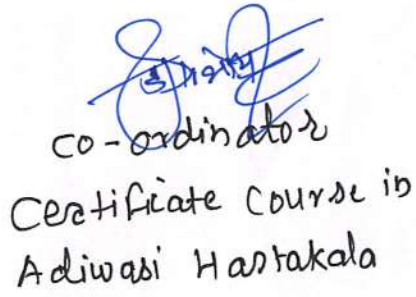 co-ordinator
Certificate Course in
Adiwasi Hastakala